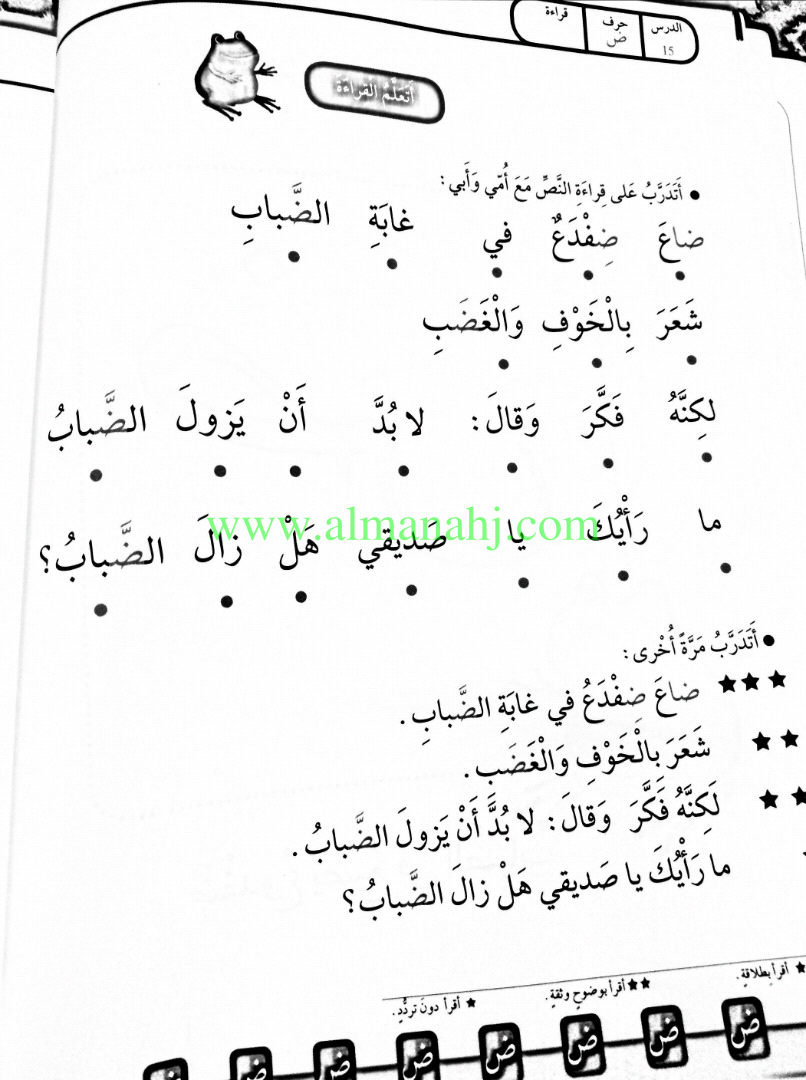 الدرس 15
حرف ض
قراءة
أَتَعَلَّمُ القِراءَةَ
• أَتَدَرَّبُ عَلى قِراءَةِ النَّصِّ مَعَ أُمّي وَأَبي:
ضاعَ ضِفْدَعٌ في غابَةِ الضَّبابِ
شَعَرَ بِالْخَوْفِ وَالْغَضَبِ
لكِنَّهُ فَكَّرَ وَقالَ: لا بُدَّ أَنْ يَزولَ الضَّبابُ
ما رَأْيُكَ يا صَديقي هَلْ زالَ الضَّبابُ؟
www.almanahj.com
• أَتَدَرَّبُ مَرَّةً أُخْرى:
★★★ ضاعَ ضِفْدَعُ في غابَةِ الضَّبابِ.
★★ شَعَرَ بِالْخَوْفِ وَالْغَضَبِ.
★★ لَكِنَّهُ فَكَّرَ وَقالَ: لا بُدَّ أَنْ يَزولَ الضَّبابُ.
ما رَأْيُكَ يا صَديقي هَلْ زالَ الضَّبابُ؟
★ أقرأ بِطلاقةٍ. ★★ أقرأ بوضوحٍ وثقةٍ. ★ أقرأ دونَ تردُّدٍ.
ض ض ض ض ض ض ض ض